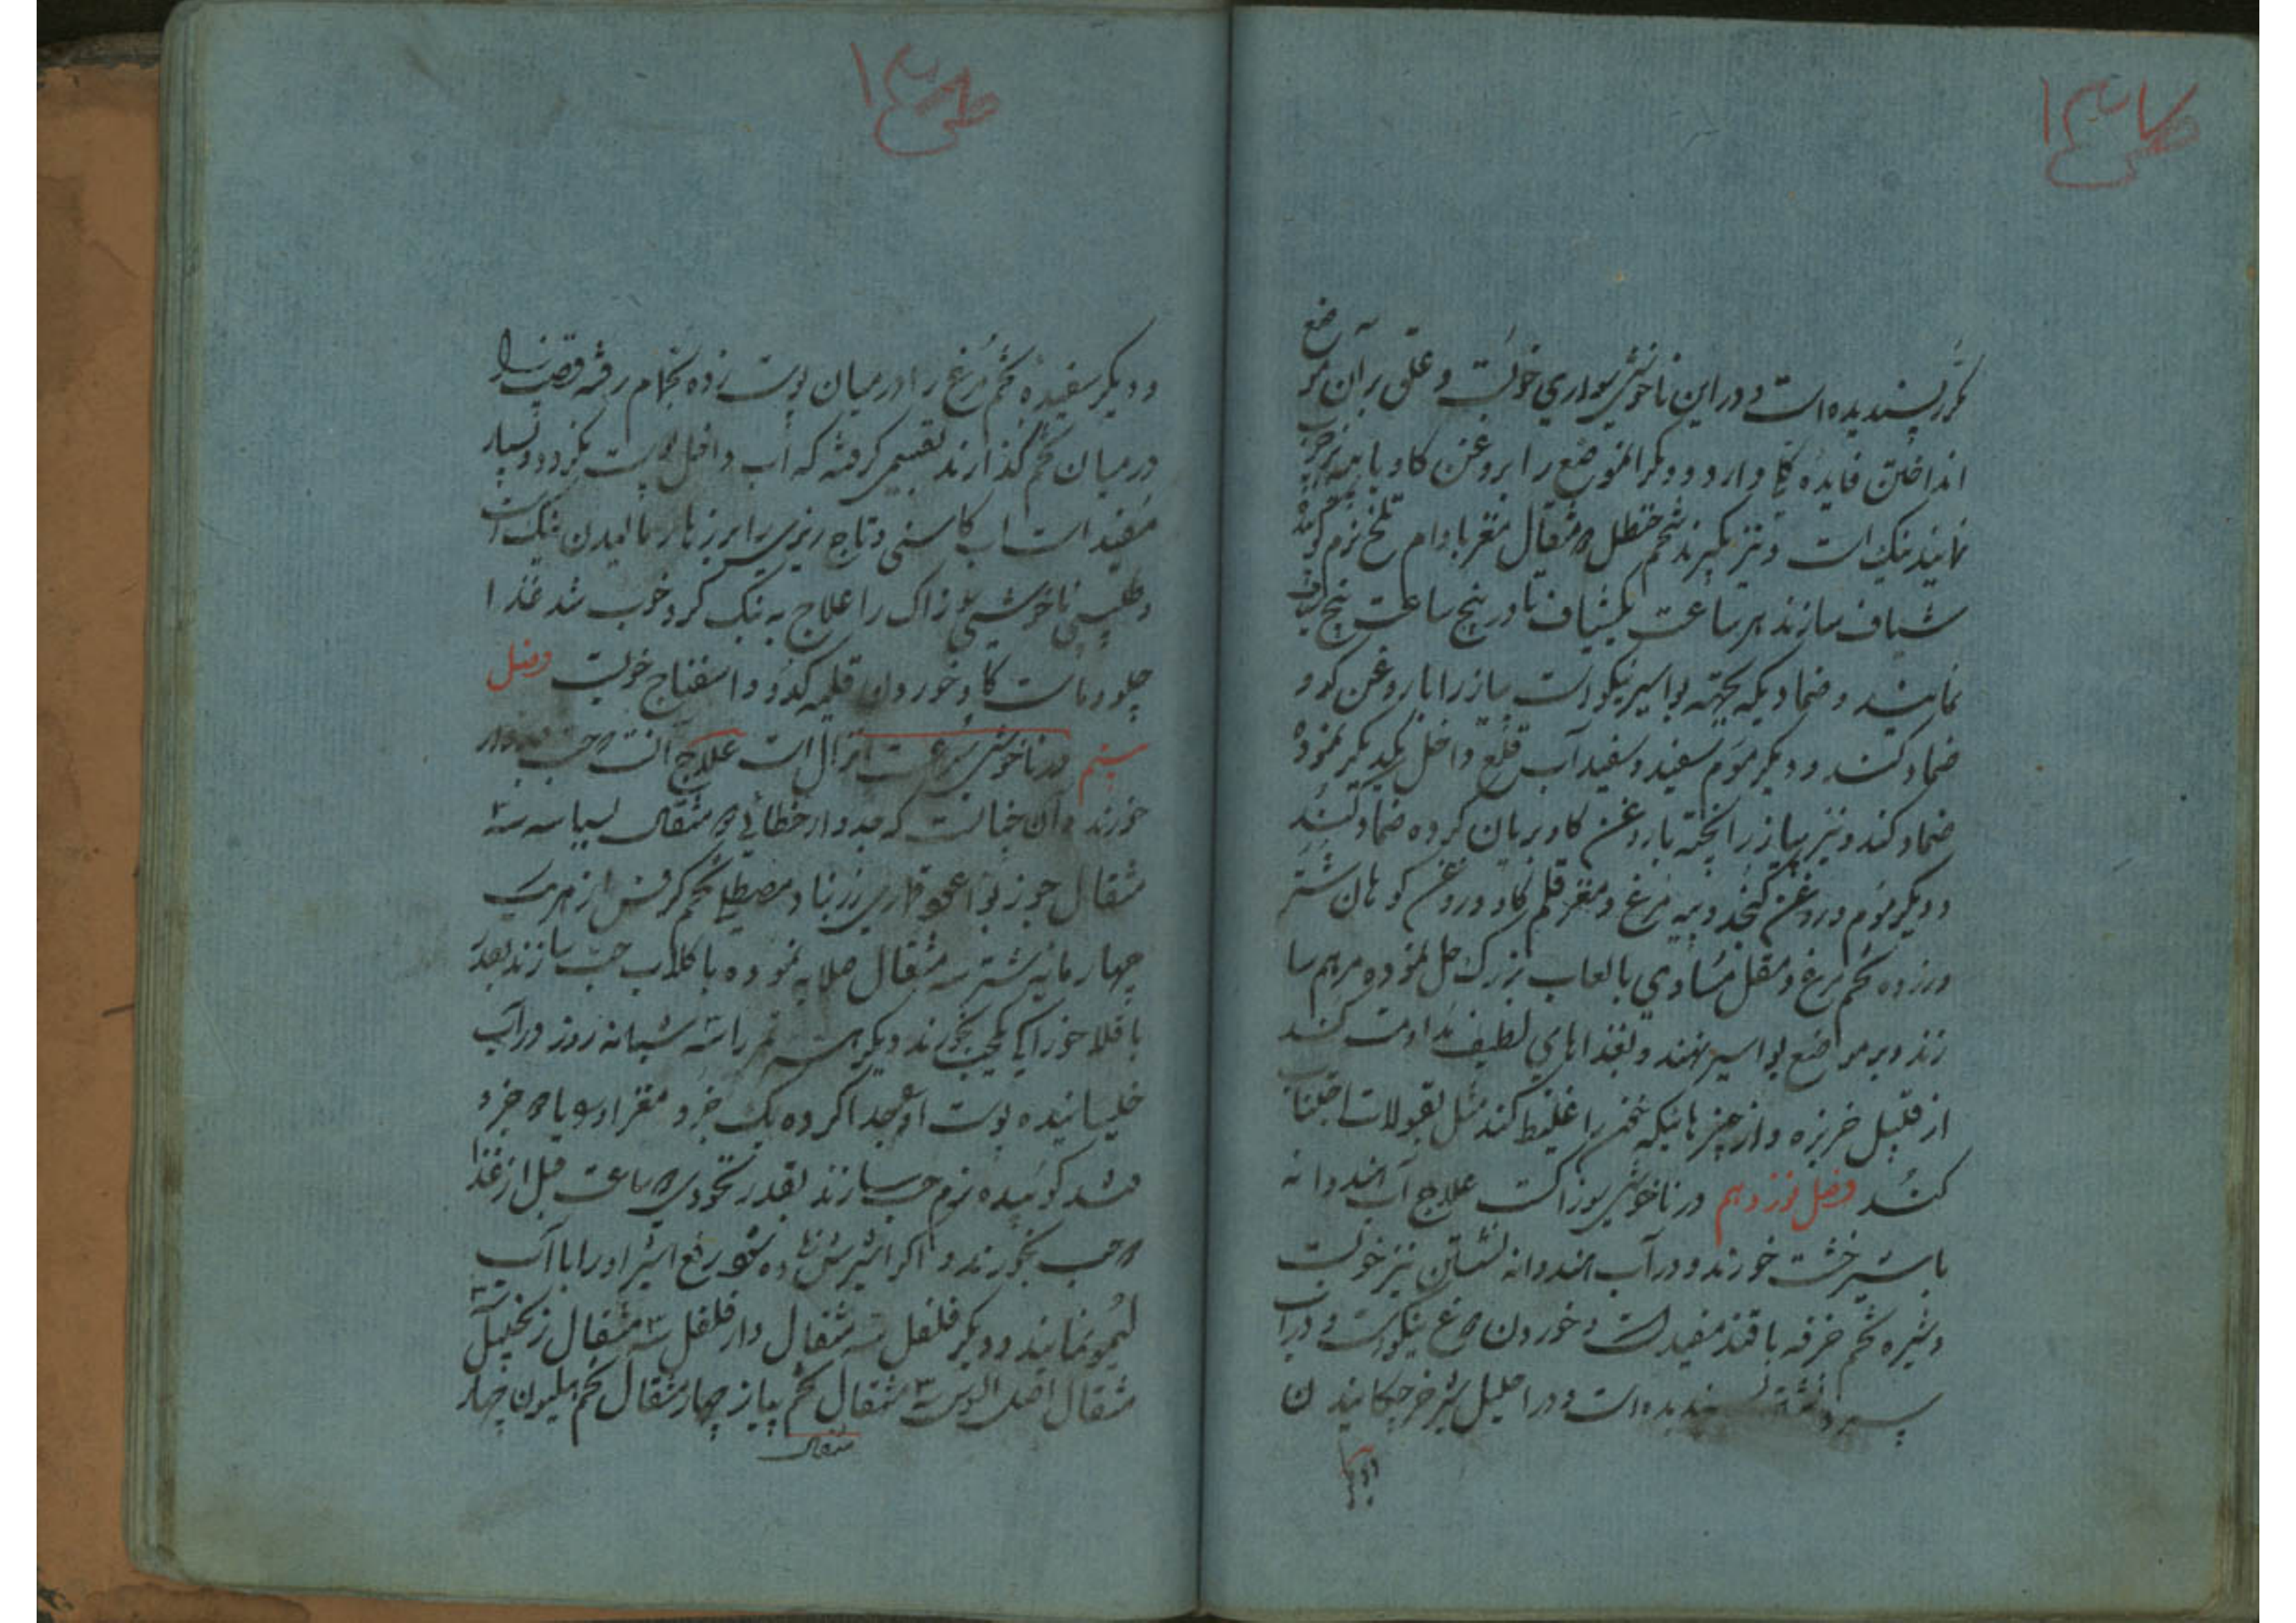 ص ۱۴۷
مکرر پسندیده است و در این ناخوشی سواری خوبست و علق بر آن موضع
انداختن فایده کلی دارد و دیگر الموضع را بروغن کاو با پیه بز چرب
نمایند نیک است و نیز بگیرند شحم حنظل مثقال مغز بادام تلخ نرم کوبیده
شیاف سازند هر ساعت یکشیاف تا در پنج ساعت پنج شیاف
نمایند و ضمادیکه بجهته بواسیر نیکو است پیاز را با روغن کاو
ضماد کنند و دیگر موم سفید و سفید آب قلع داخل یکدیگر نموده
ضماد کند و نیز پیاز را پخته با روغن کاو بریان کرده ضماد کنند
و دیگر موم و روغن کنجد و پیه مرغ و مغز قلم کاو و روغن کوهان شتر
و زرده تخم مرغ و مقل مساوی با لعاب بزرک حل نموده مرهم سا
زند و بر مواضع بواسیر نهند و بغذاهای لطیف مداومت کنند
از قلیل خربزه و از چیزهائیکه خون را غلیظ کند مثل بقولات اجتناب
کنند فصل نوزدهم در ناخوشی سوزاکست علاج آب هندوانه
با شیرخشت خورند و در آب هندوانه نشاتن نیز خوبست
و شیره تخم خرفه با قند مفید است و خوردن دوغ نیکو است و در آب
سرد نشستن پسندیده است و در احلیل شیر خر چکانیدن
و دیگر
ص ۱۴۸
و دیگر سفیده تخم مرغ را در میان پوست زده بحمام رفته قضیب را
در میان تخم گذارند بقسمی گرفته که آب داخل پوست نگردد و بسیار
مفید است آب کاسنی و تاج ریزی را بر زهار مالیدن نیک است
و طبیبی ناخوشی سوزاک را علاج به نیک کرد خوب شد غذا
چلو و ماست کاو خوردن قلیه کدو و اسفناج خوبست فصل
بیستم در ناخوشی سرعت انزال است علاج آنست حب جدوار
خورند و آن چنانست که جدوار خطائی مثقال بسباسه سه
مثقال جوز بوا عود قماری زرنباد مصطکی تخم کرفس از هر یک
چهار مایه شتر سه مثقال صلایه نموده با گلاب حب سازند بقدر
باقلا خوراکی یکحب بخورند دیگر تمر را سه شبانه روز در آب
خلیسانیده پوست او جدا کرده یک جزو مغز او یا جزو
قند کوبیده نرم حب سازند بقدر نخودی ساعت قبل از غذا
حب بخورند و اگر اثرش زیاده شود رفع اثر او را با آب
لیمو نمایند و دیگر فلفل سه مثقال دارفلفل سه مثقال زنجبیل سه
مثقال اصل السوس مثقال تخم پیاز چهار مثقال تخم هلیون چهار
مثقال